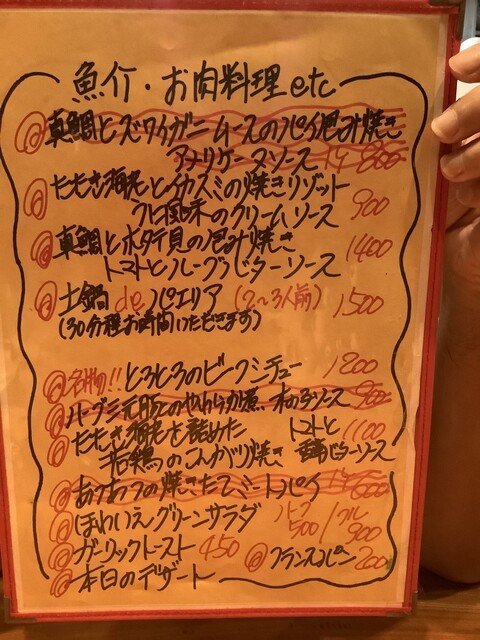 魚介・お肉料理etc
真鯛とズワイガニムースのパイ包み焼き
アメリケーヌソース
たたき海老とイカスミの焼きリゾット
ウニ風味のクリームソース 900
真鯛とホタテ貝の包み焼き 1400
トマトとハーブのバターソース
土鍋deパエリア (2〜3人前) 1500
(30分程お時間いただきます)
名物!!とろとろのビーフシチュー 1200
ハーブ三元豚のやわらか煮 木の子ソース 900
たたき海老を詰めた トマトと 1100
若鶏のこんがり焼き バターソース
あつあつの焼きたてミートパイ 600
ほわいえグリーンサラダ ハーフ 500/フル 900
ガーリックトースト 450 フランスパン 200
本日のデザート